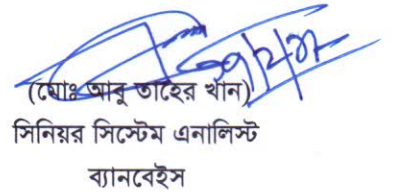 (মোঃ আবু তাহের খান)
সিনিয়র সিস্টেম এনালিস্ট
ব্যানবেইস